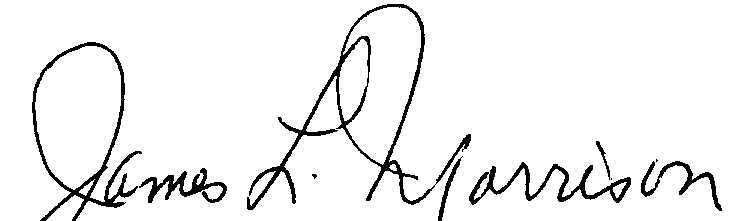 James L. Morrison